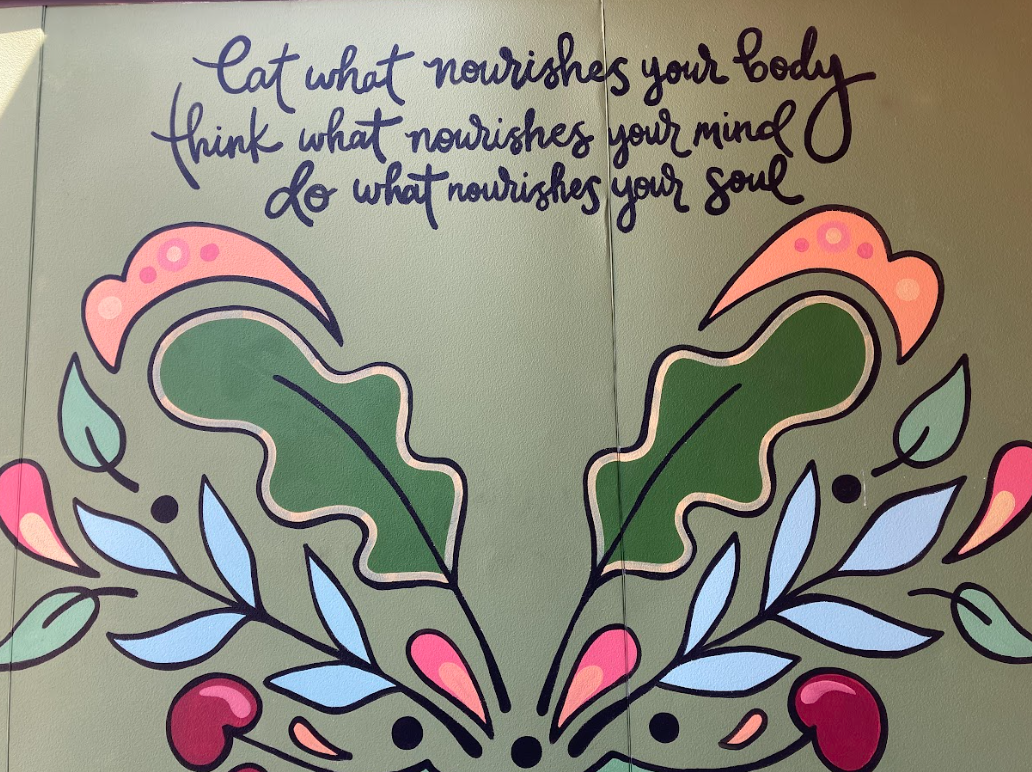 Eat what nourishes your body
think what nourishes your mind
do what nourishes your soul